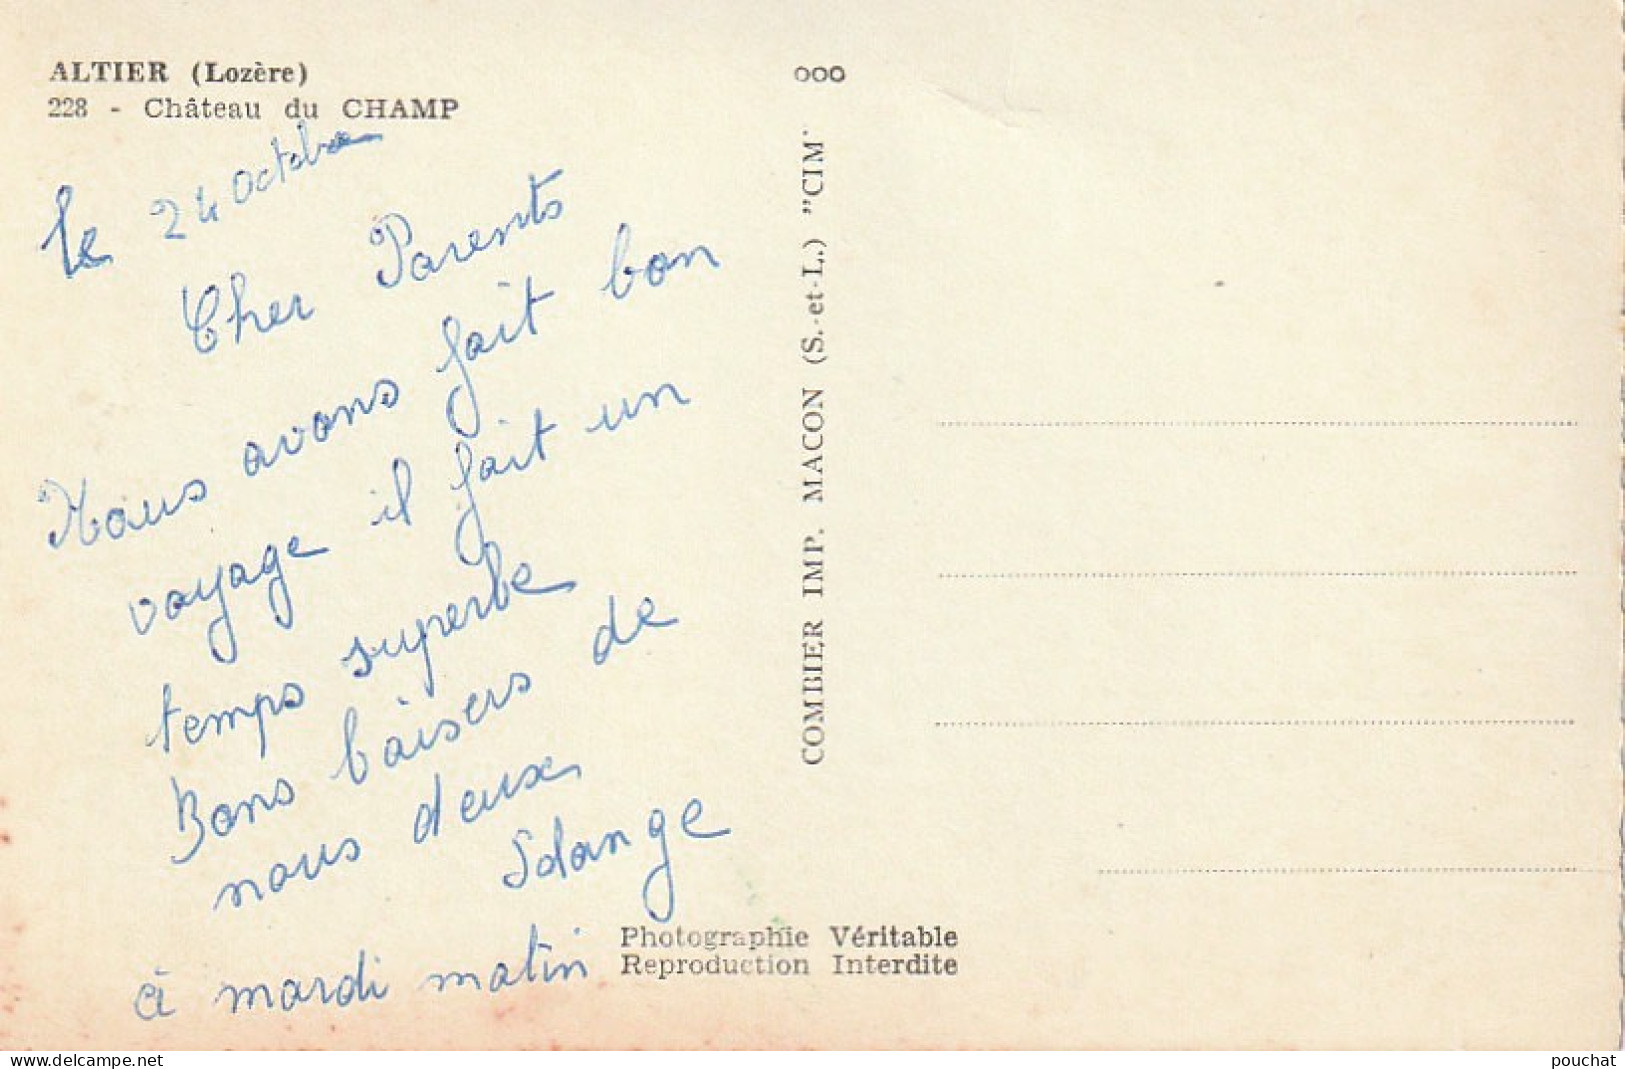 ALTIER (Lozère)
228 - Château du CHAMP
le 24 octobre
Cher Parents
Nous avons fait bon
voyage il fait un
temps superbe
Bons baisers de
nous deux
Solange
à mardi matin
ooo
COMBIER IMP. MACON (S.-et-L.) "CIM"
Photographie Véritable
Reproduction Interdite
www.delcampe.net
pouchat